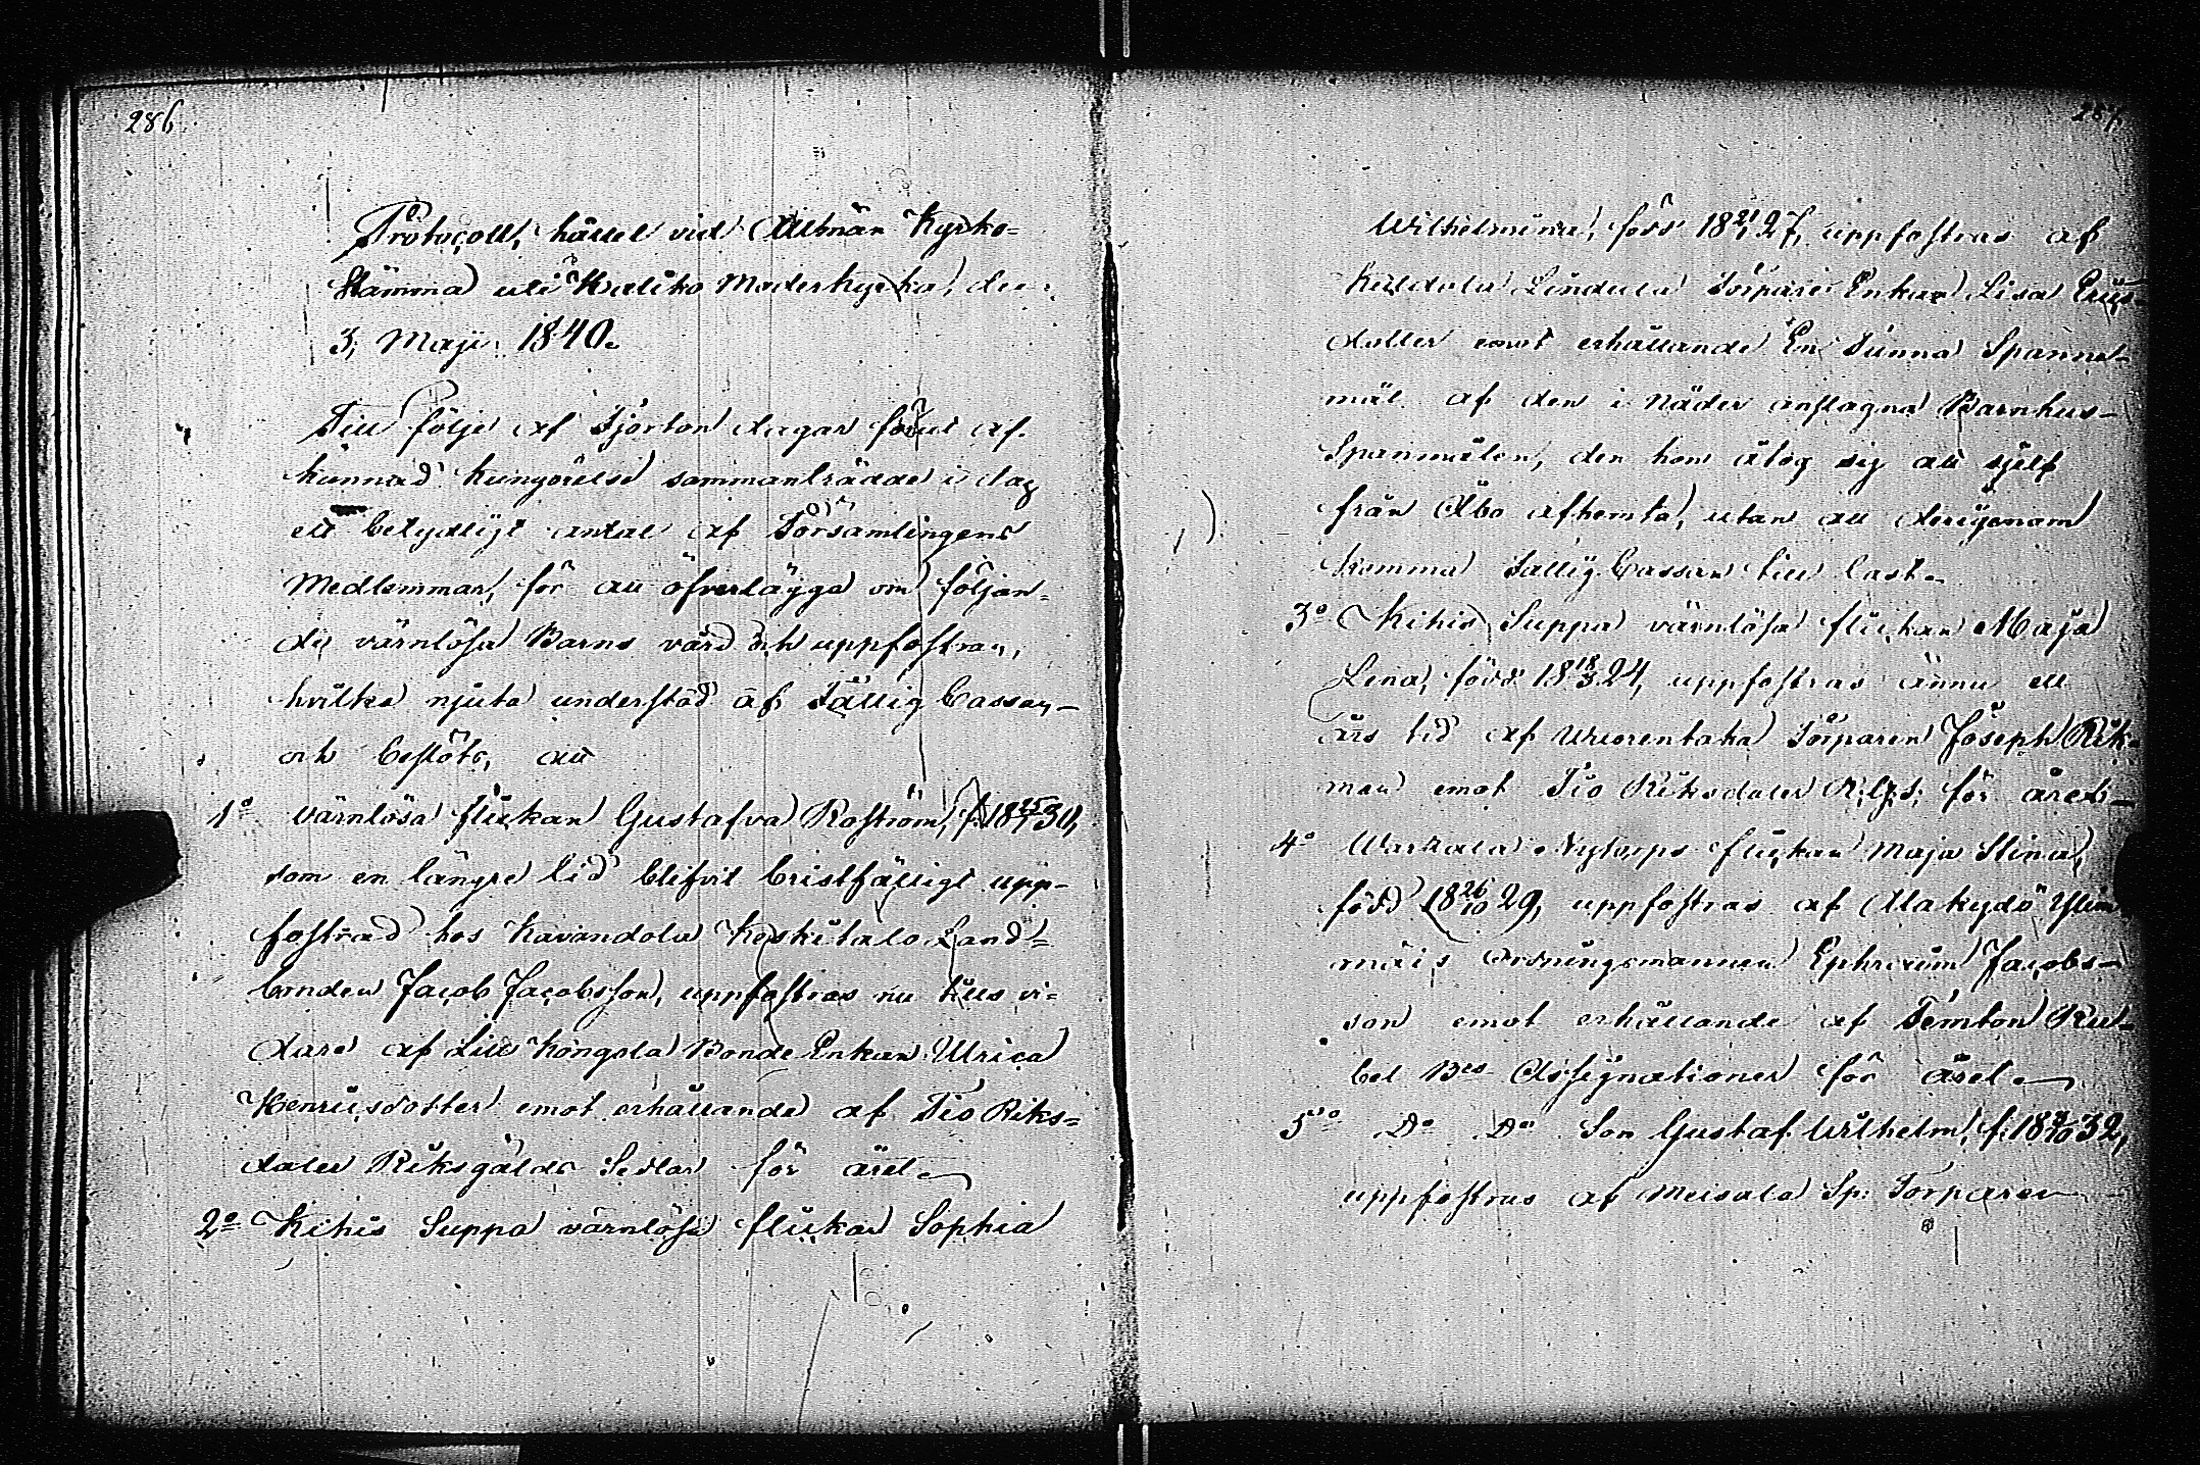 286
Protocoll, hållet vid Allmän Kyrko=
Stämma uti Kaliko Moderkyrka, den
3, Maji 1840.
Till följe af Fjorton dagar förut af-
kunnad Kungörelse sammanträdde i dag
ett betydligt antal af Församlingens
Medlemmar, för att öfverlägga om följan=
de värnlösa Barns vård och uppfostran,
hvilka njuta understöd af Fattig Cassan,—
och beslöts, att
1º värnlösa flickan Gustafva Roström, f. 18 30,
som en längre tid blifvit bristfälligt upp=
fostrad hos Kavandola Keskitalo Land=
bonden Jacob Jacobsson, uppfostras nu tills vi=
dare af Lill Köngola Bonde Enkan Ulrica
Henricsdotter emot erhållande af Tio Riks=
daler Riksgälds Sedlar för året.
2º Kihis Suppa värnlösa flickan Sophia
287
Wilhelmina, född 18 21/1 27, uppfostras af
Kuldola Lindula Torpare Enkan Lisa Erics=
dotter emot erhållande En Tunna Spanne=
mål af den i Nåder anslagna Barnhus=
Spanmålen, den hon åtog sig att sjelf
från Åbo afhemta, utan att derigenom
komma Fattig Cassan till last.
3º Kihis Suppa värnlösa flickan Maja
Lena, född 18 18/3 24, uppfostras ännu ett
års tid af Wuorentaka Torparen Joseph Rik=
man emot Tio Riksdaler R.G.S. för året.
4º Warkala Nytorps flickan Maja Stina,
född 18 26/10 29, uppfostras af Alakydö
Ordningsmannen Ephraim Jacobs=
son emot erhållande af Femton Ru=
bel Bco Assignationer för året.
5º Dº Dº Son Gustaf Wilhelm, f. 18 32,
uppfostras af Meisala Sp: Torparen